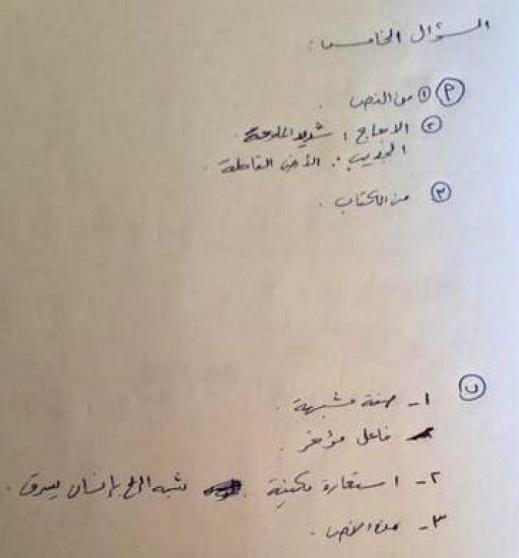 السؤال الخامس :
(P) ① من النص .
② الاجاج : شديد الملوحة
الجديب : الأرض القاحلة .
③ من الكتاب .
(ب)
١- صفة مشبهة .
فاعل مؤخر .
٢- استعارة مكنية . شبه الرمح بإنسان يسرق .
٣- من النص .